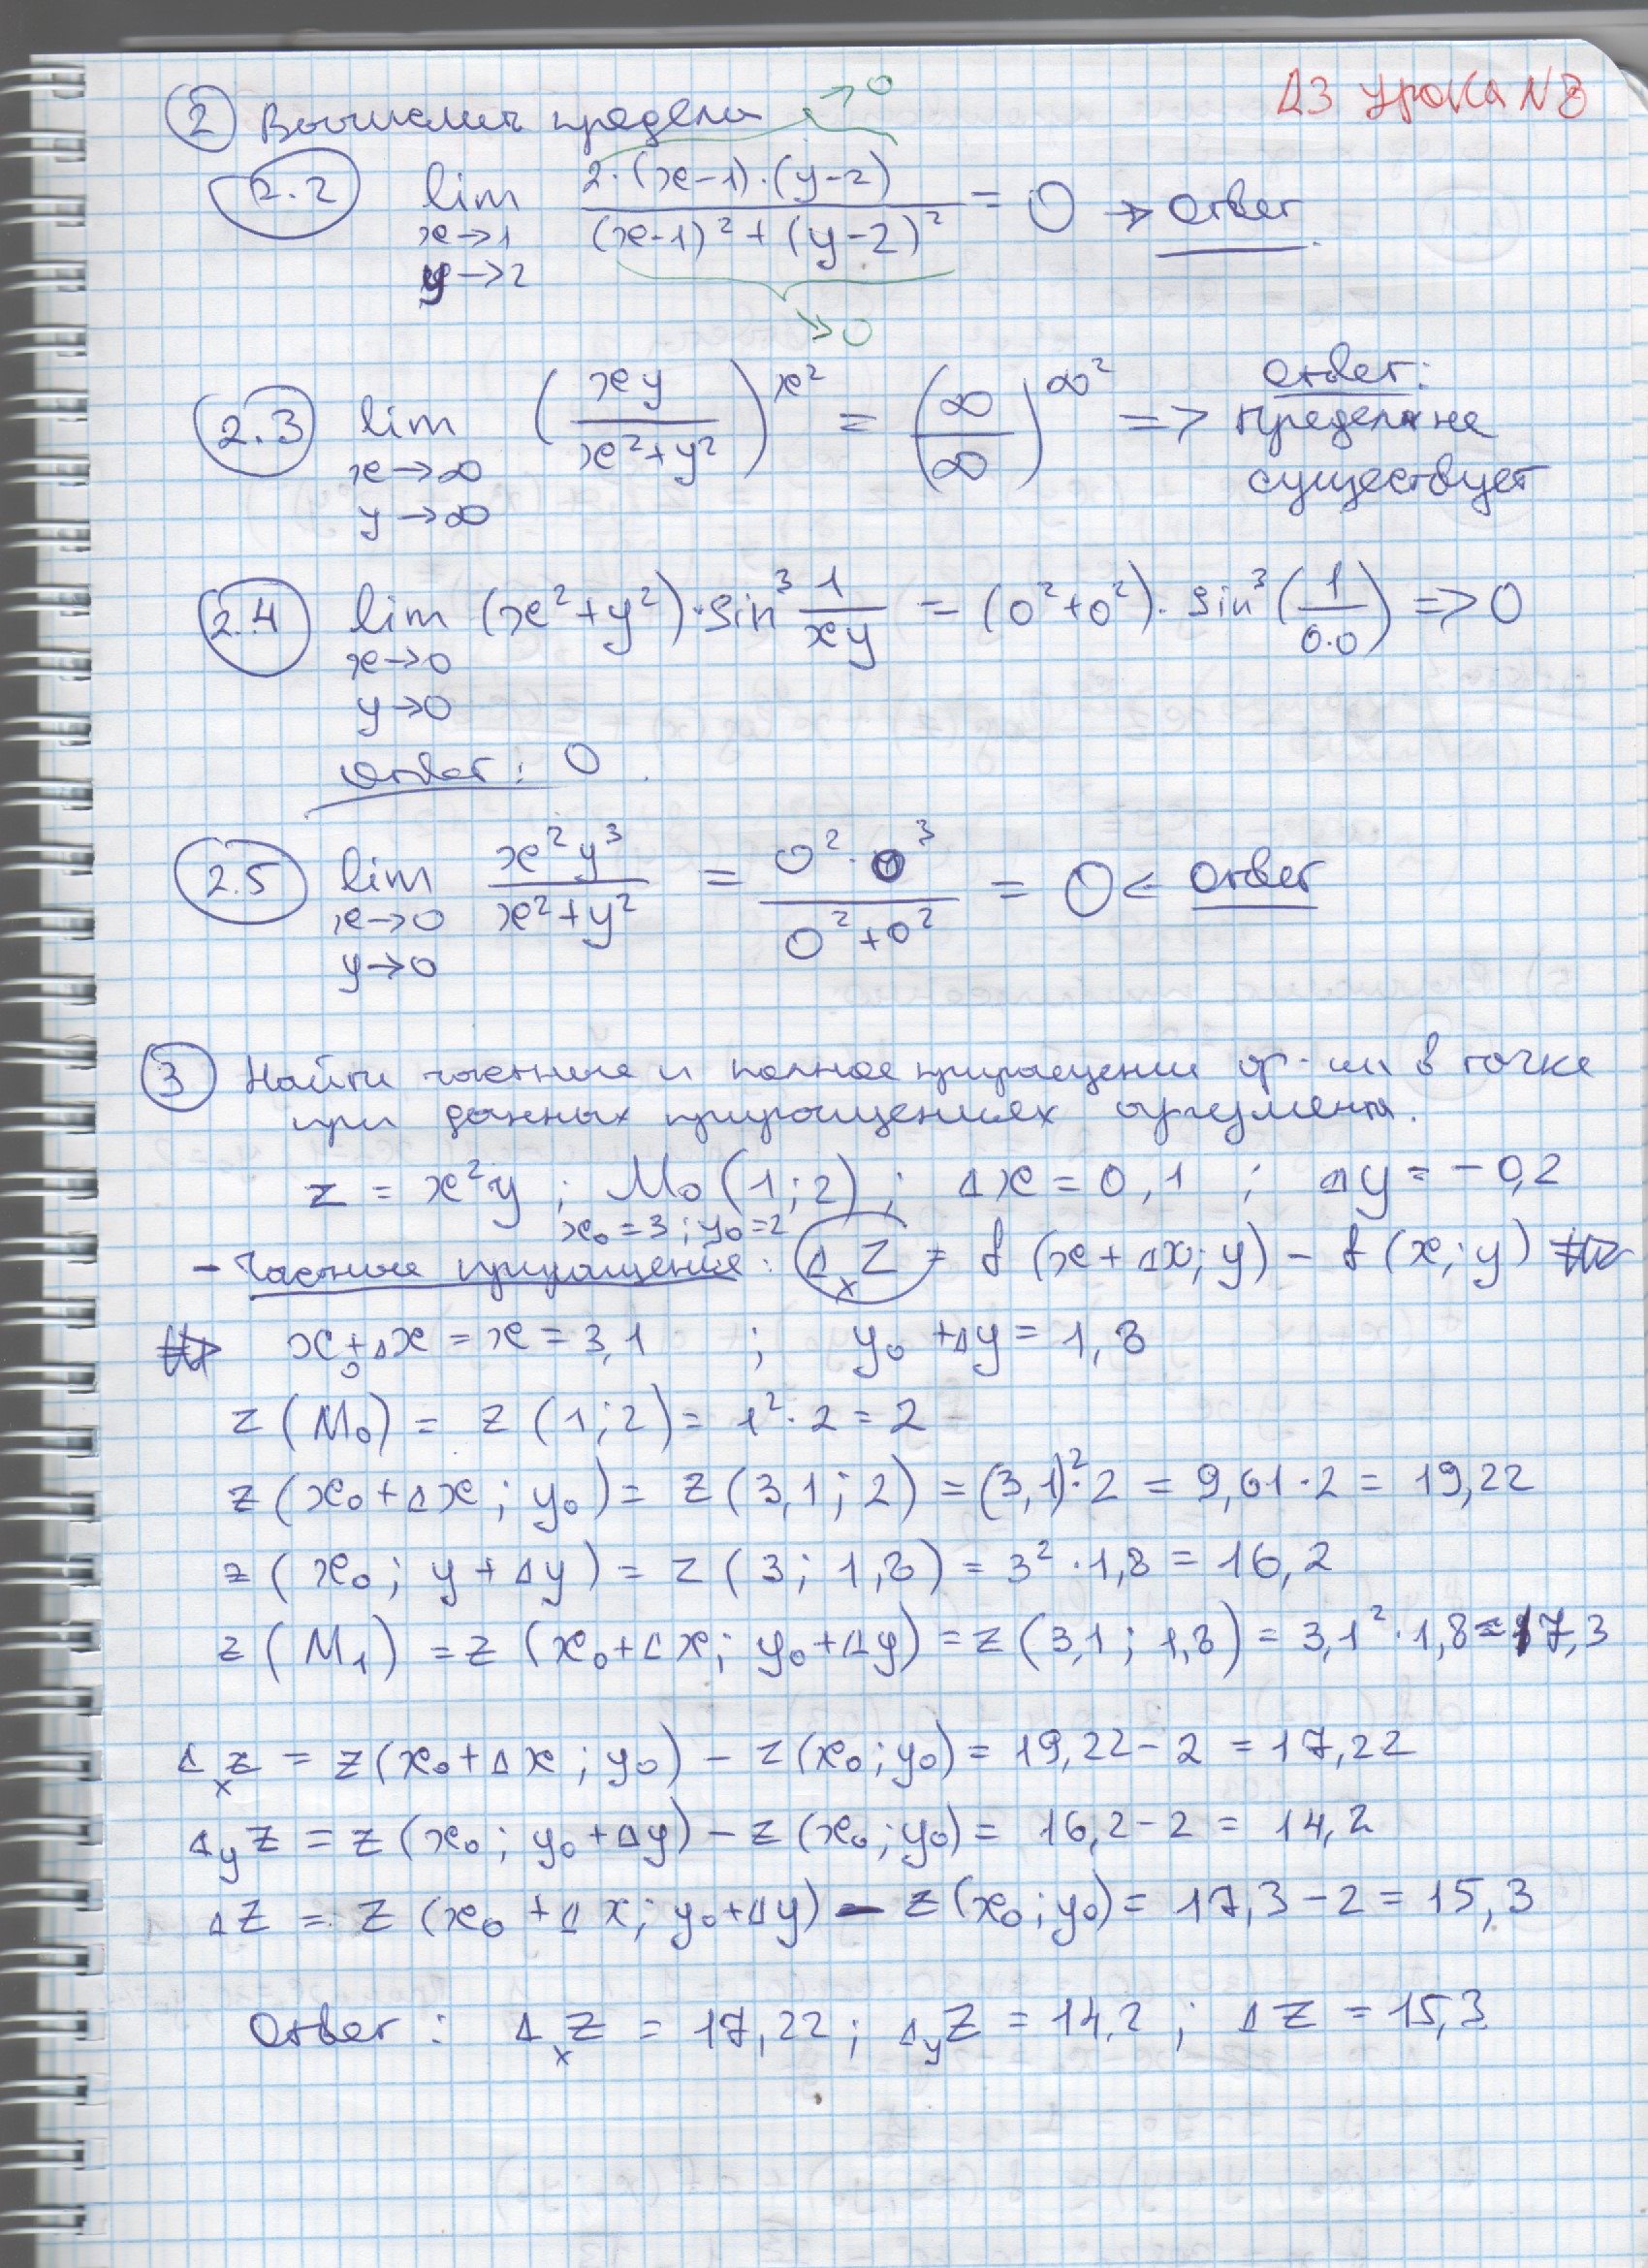 ДЗ урока №8
② Вычислить пределы → 0
2.2 lim x→1 y→2 2·(x-1)·(y-2) / (x-1)² + (y-2)² = 0 → ответ.
→ 0
2.3 lim x→∞ y→∞ (xy / x²+y²)^x² = (∞/∞)^∞² => ответ: предела не существует
2.4 lim x→0 y→0 (x²+y²)·sin³ 1/xy = (0²+0²)· sin³(1/0·0) => 0
ответ: 0.
2.5 lim x→0 y→0 x²y³ / x²+y² = 0²·0³ / 0²+0² = 0 ← ответ
③ Найти частные и полное приращении ф-ии в точке
при данных приращениях аргумента.
z = x²y ; M₀(1;2) ; Δx = 0,1 ; Δy = -0,2
x₀ = 3 ; y₀ = 2
- Частные приращения: ΔₓZ = f(x+Δx; y) - f(x; y)
x₀+Δx = x = 3,1 ; y₀+Δy = 1,8
z(M₀) = z(1;2) = 1²·2 = 2
z(x₀+Δx; y₀) = z(3,1; 2) = (3,1)²·2 = 9,61·2 = 19,22
z(x₀; y+Δy) = z(3; 1,8) = 3²·1,8 = 16,2
z(M₁) = z(x₀+Δx; y₀+Δy) = z(3,1; 1,8) = 3,1²·1,8 ≈ 17,3
Δₓz = z(x₀+Δx; y₀) - z(x₀; y₀) = 19,22 - 2 = 17,22
Δyz = z(x₀; y₀+Δy) - z(x₀; y₀) = 16,2 - 2 = 14,2
Δz = z(x₀+Δx; y₀+Δy) - z(x₀; y₀) = 17,3 - 2 = 15,3
Ответ: Δₓz = 17,22; Δyz = 14,2; Δz = 15,3